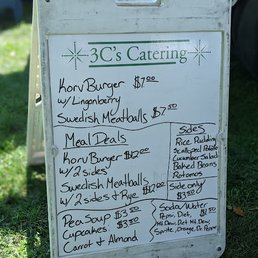 3C's Catering
Korv Burger $7.00
w/ Lingonberry
Swedish Meatballs $7.50
Meal Deals
Korv Burger $12.00
w/ 2 sides
Swedish Meatballs
w/ 2 sides & Rye $12.00
Pea Soup $3.50
Cupcakes $3.00
Carrot & Almond
Sides
Rice Pudding
Scalloped Potato
Cucumber Salad
Baked Beans
Potatoes
Side only
$3.50
Soda/Water
Pepsi, Diet,
Mt. Dew, Diet Mt. Dew
Sprite, Orange, Dr Pepper